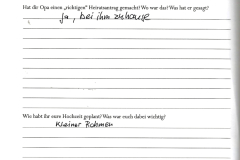 Hat dir Opa einen „richtigen" Heiratsantrag gemacht? Wo war das? Was hat er gesagt?
Ja, bei ihm zuhause
Wie habt ihr eure Hochzeit geplant? Was war euch dabei wichtig?
Kleiner Rahmen